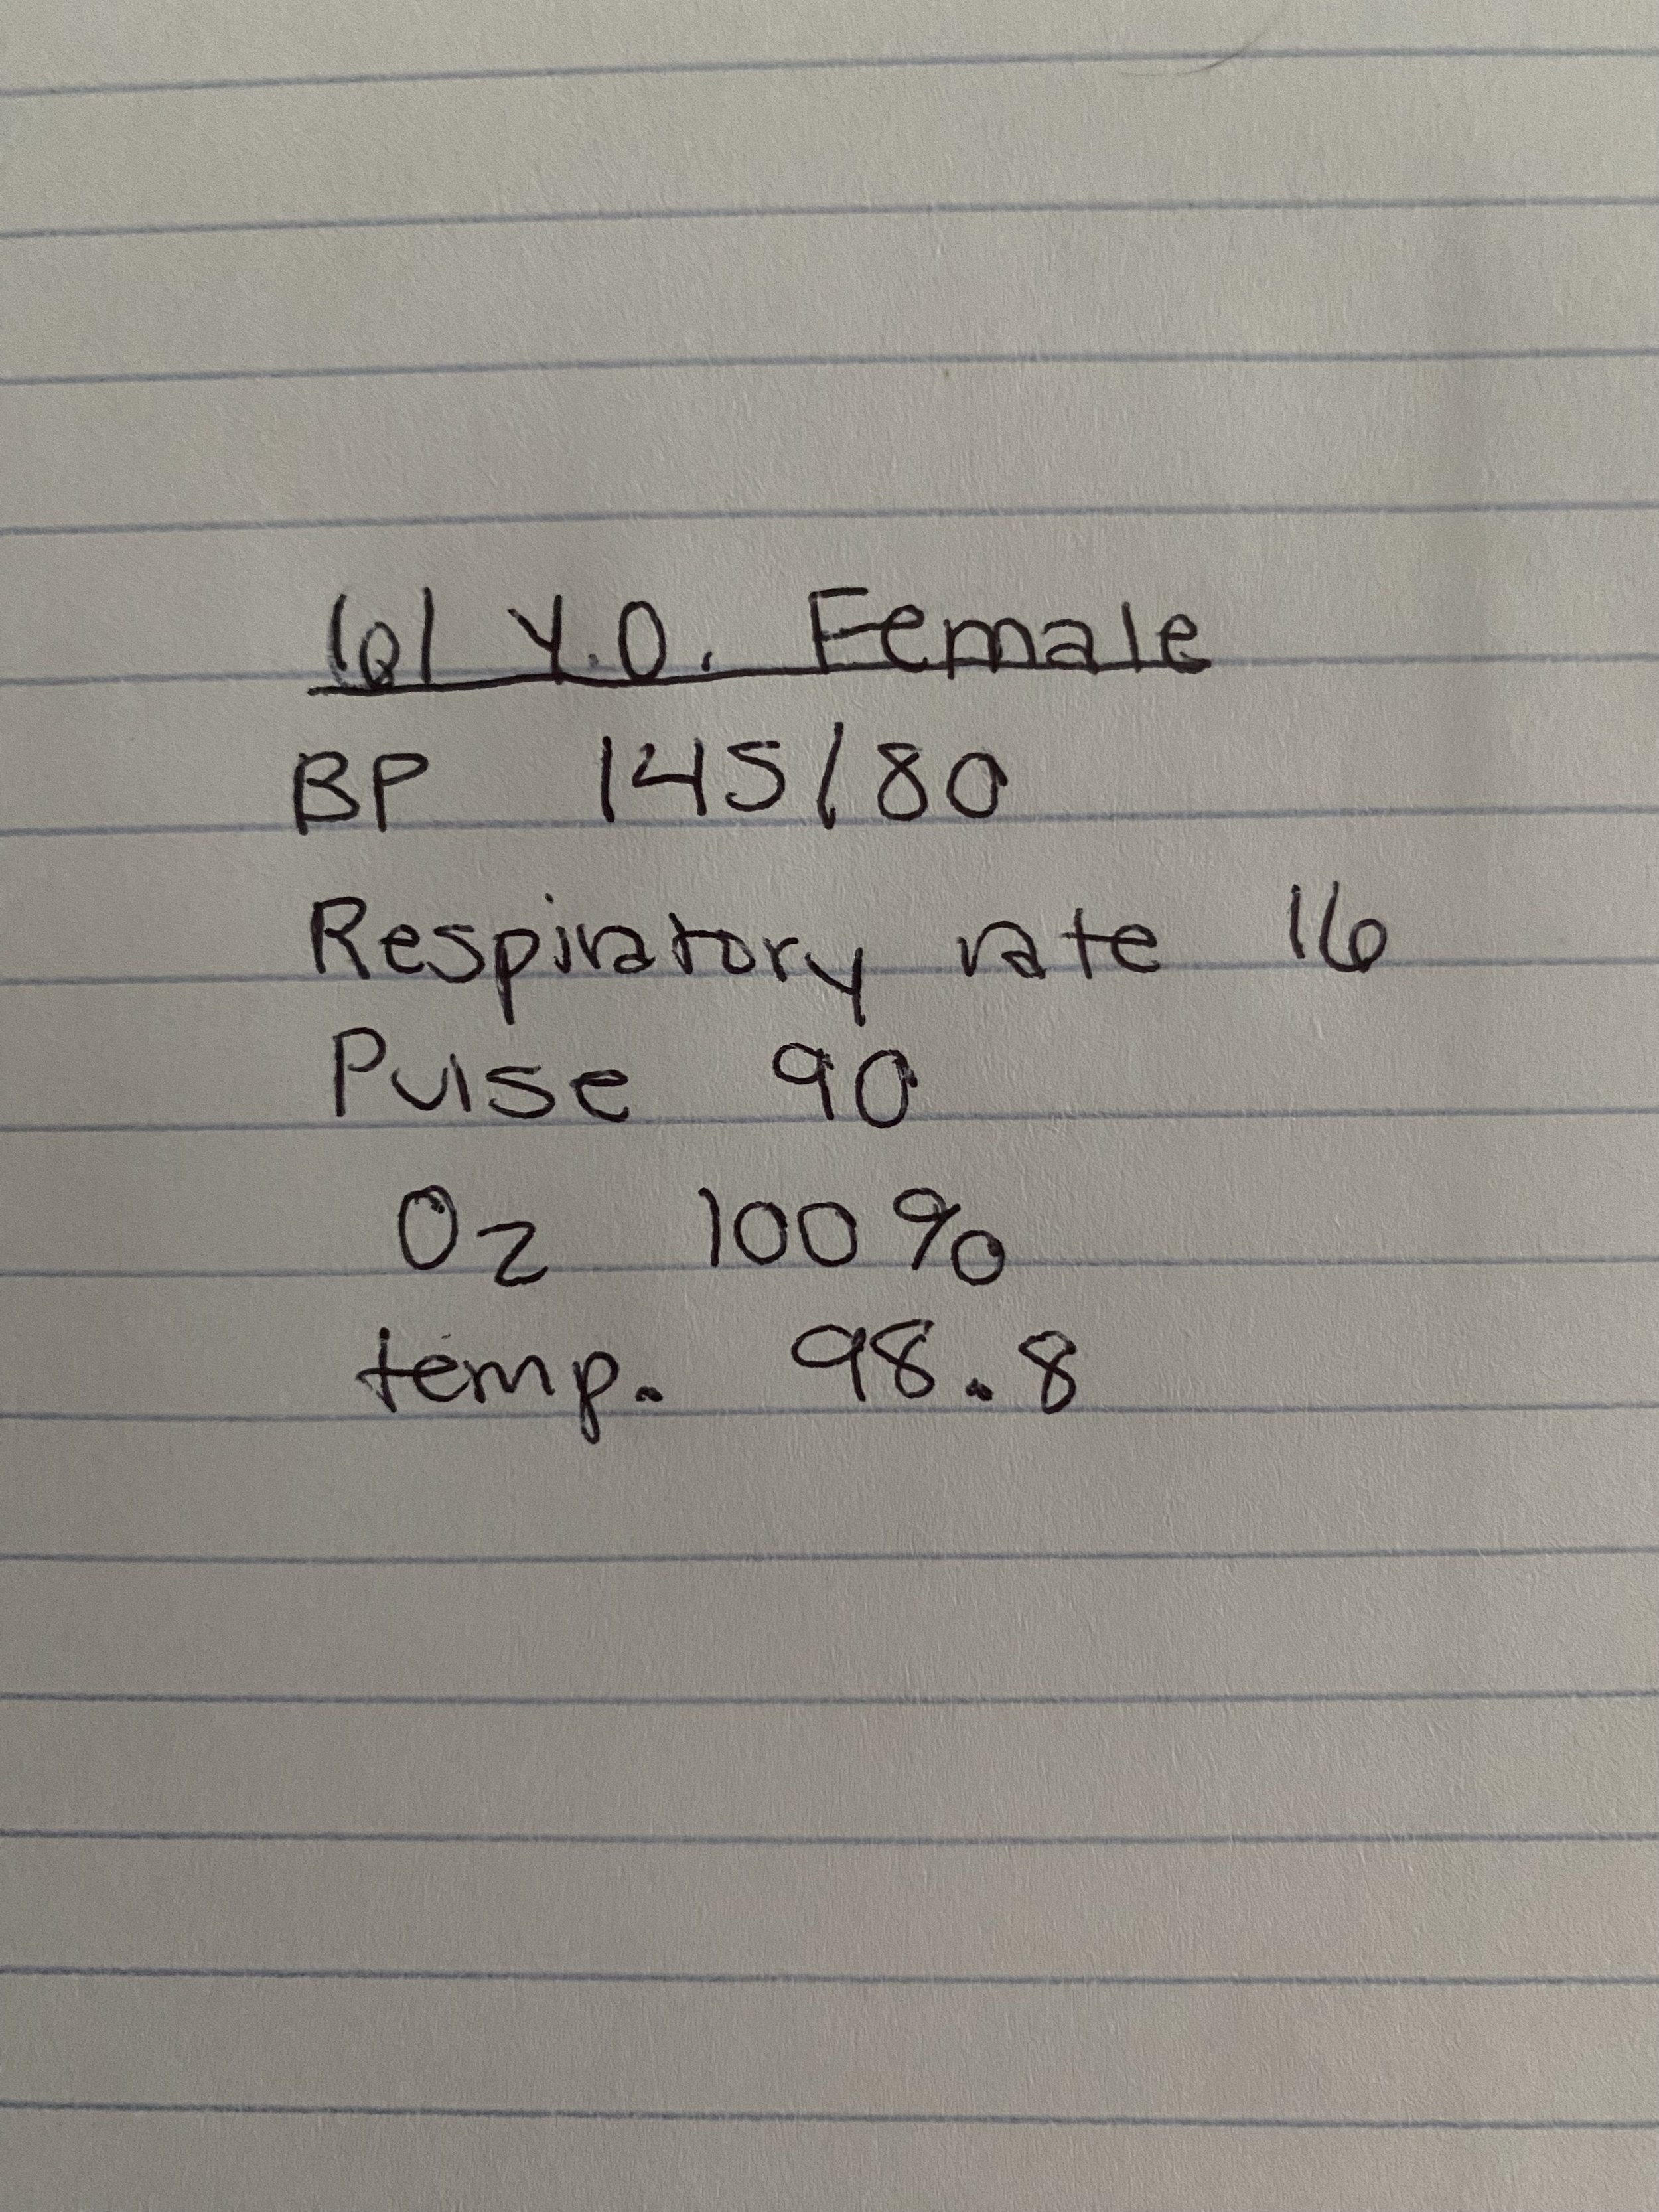 61 Y.O. Female
BP 145/80
Respiratory rate 16
Pulse 90
O2 100%
temp. 98.8